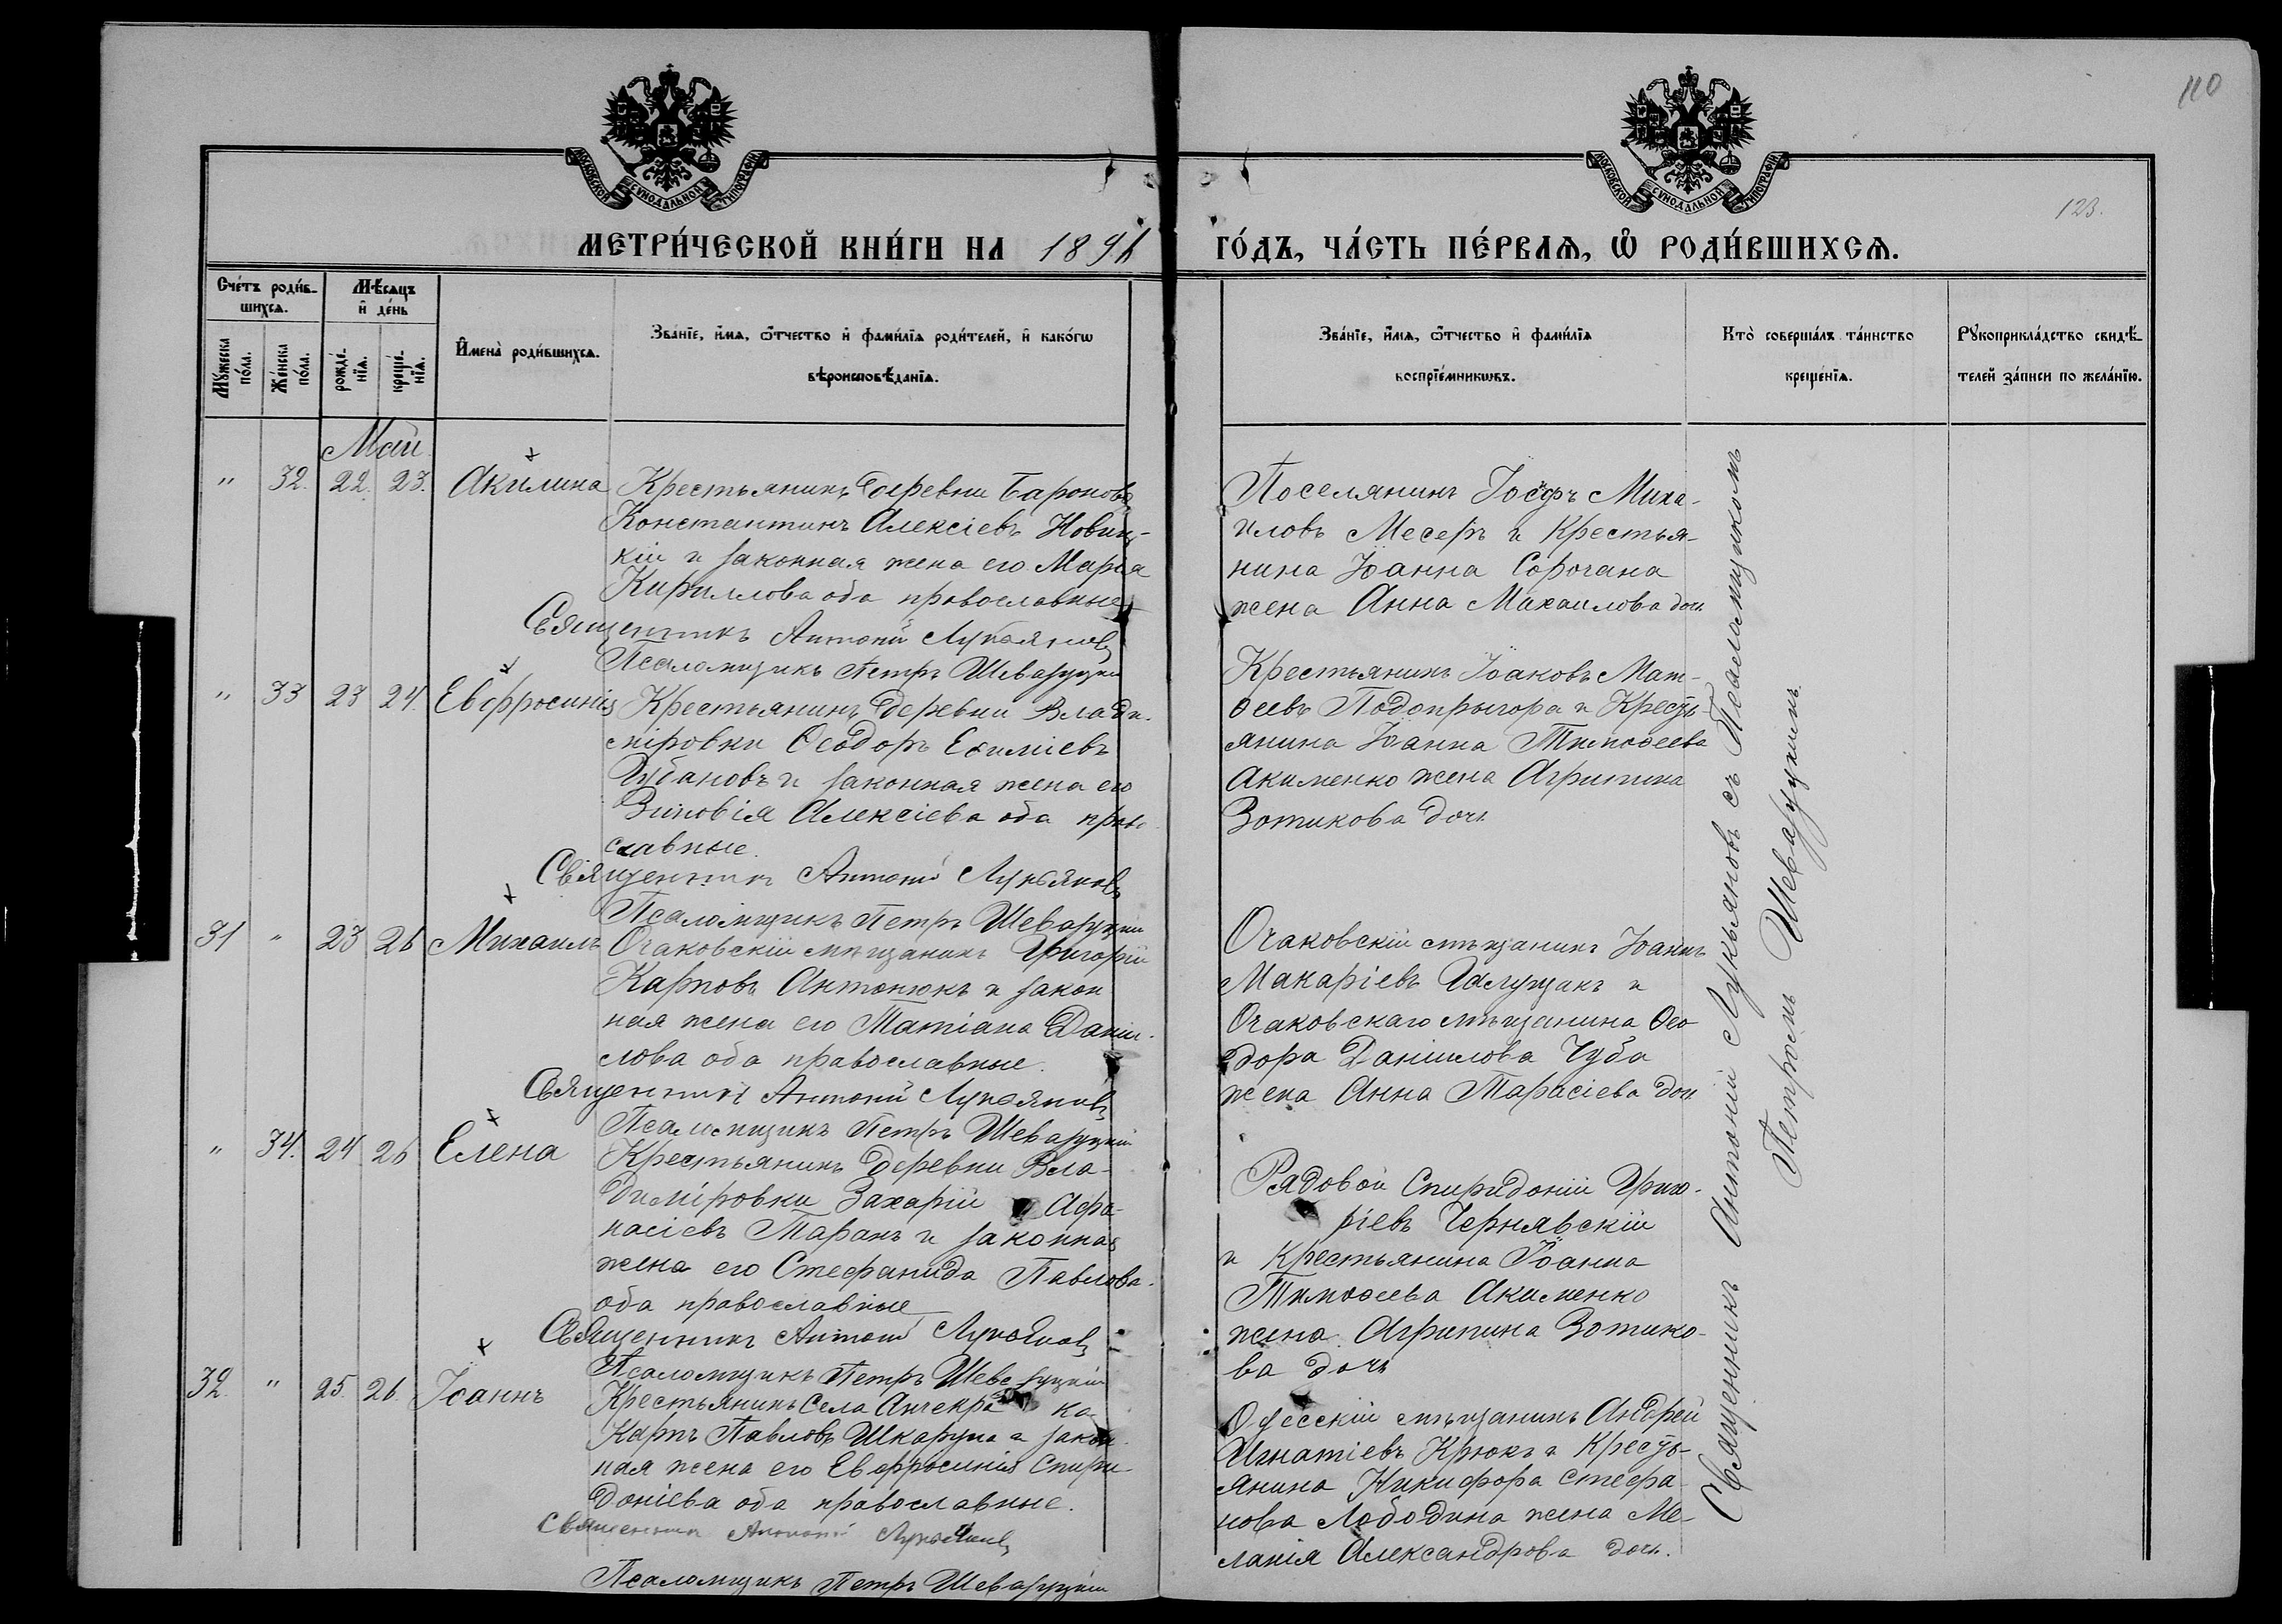 110
МОСКОВСКОЙ СѴНОДАЛЬНОЙ ТИПОГРАФІИ
МОСКОВСКОЙ СѴНОДАЛЬНОЙ ТИПОГРАФІИ
123.
МЕТРИ́ЧЕСКОЙ КНИ́ГИ НА 1891
ГО́ДЪ, ЧА́СТЬ ПЕ́РВАѦ, Ѿ РОДИ́ВШИХСѦ.
Сче́тъ роди́в-
шихсѧ.
Мѣсѧцъ
и҆ де́нь
Мꙋ́жеска
по́ла.
Же́нска
по́ла.
рожде́-
нїѧ.
креще́-
нїѧ.
И҆мена̀ роди́вшихсѧ.
Зва́нїе, и҆́мѧ, ѻ҆́тчество и҆ фами́лїѧ роди́телей, и҆ како́гѡ
вѣроисповѣ́данїѧ.
Зва́нїе, и҆́мѧ, ѻ҆́тчество и҆ фами́лїѧ
воспрїе́мникѡвъ.
Кто̀ соверша́лъ та́инство
креще́нїѧ.
Рꙋкоприкла́дство свидѣ́-
телей за́писи по жела́нїю.
Май
" 32. 22. 23. Акилина
Крестьянинъ деревни Баронова
Константинъ Алексіевъ Новиц-
кій и законная жена его Марія
Кириллова оба православные
Священникъ Антоній Лукьяновъ
Псаломщикъ Петръ Шеваруцкій
Поселянинъ Іосифъ Миха-
иловъ Месеръ и Крестья-
нина Іоанна Сорочана
жена Анна Михаилова дочь
" 33 23 24. Евфросинія
Крестьянинъ деревни Влади-
міровки Ѳеодоръ
Губановъ и законная жена его
Зиновія Алексіева оба право
славные.
Священникъ Антоній Лукьяновъ
Псаломщикъ Петръ Шеваруцкій
Крестьянинъ Іоаковъ Мат-
ѳеевъ Подопрыгора и Кресть-
янина Іоанна Тимоѳеева
Акименко жена Агрипина
Зотикова дочь
31 " 23 26 Михаилъ
Очаковскій мѣщанинъ Григорій
Карповъ Антонюкъ и закон
ная жена его Татіана Даніи-
лова оба православные.
Священникъ Антоній Лукьяновъ
Псаломщикъ Петръ Шеваруцкій
Очаковскій мѣщанинъ Іоаннъ
Макаріевъ Галущакъ и
Очаковскаго мѣщанина Ѳео
дора Даніилова Чуба
жена Анна Тарасіева доч
" 34. 24 26 Елена
Крестьянинъ деревни Вла-
диміровки Захарій Афа-
насіевъ Таранъ и законная
жена его Стефанида Павлова.
оба православные
Священникъ Антоній Лукьяновъ
Псаломщикъ Петръ Шеваруцкій
Рядовой Спиридоній Григо-
ріевъ Чернявскій
и Крестьянина Іоанна
Тимоѳеева Акименко
жена Агрипина Зотико-
ва дочь
32. " 25. 26. Іоаннъ
Крестьянинъ Села Анчекра ка
Карпъ Павловъ Шкарупа и закон
ная жена его Евфросинія Спири-
доніева оба православные.
Священникъ Антоній Лукьяновъ
Псаломщикъ Петръ Шеваруцкій
Одесскій мѣщанинъ Андрей
Игнатіевъ Крюкъ и Кресть-
янина Никифора Стефа-
нова Лободина жена Ме-
ланія Александрова дочь.
Священникъ Антоній Лукьяновъ съ Псаломщикомъ
Петромъ Шеваруцкимъ